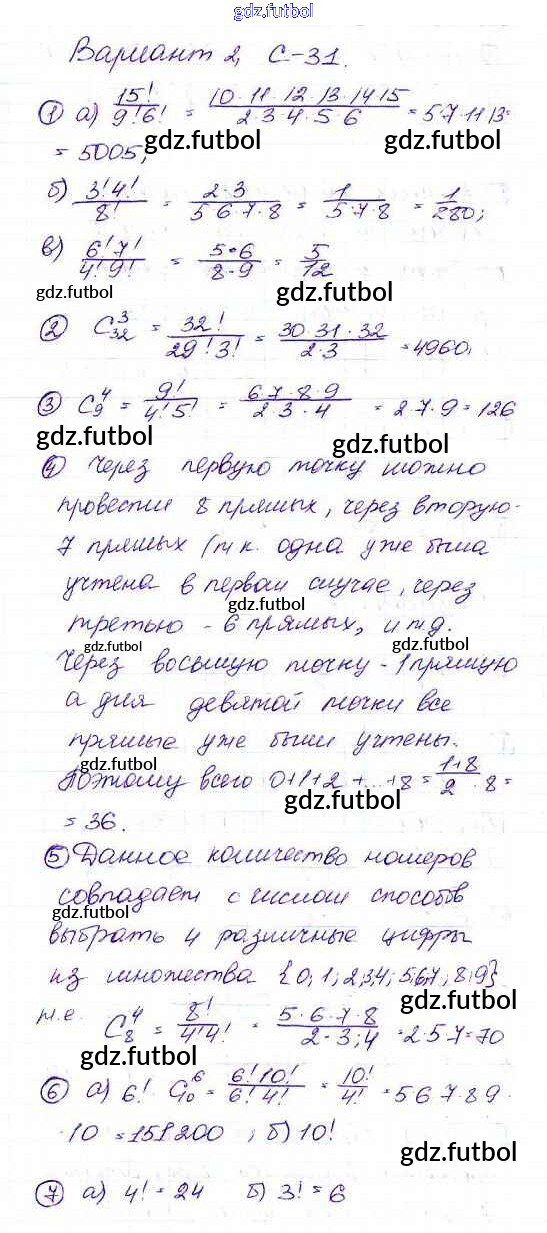 gdz.futbol
gdz.futbol
Вариант 2, С-31.
① а) 15!/9!6! = 10·11·12·13·14·15/2·3·4·5·6 = 5·7·11·13=
gdz.futbol gdz.futbol
= 5005;
б) 3!4!/8! = 2·3/5·6·7·8 = 1/5·7·8 = 1/280;
в) 6!7!/4!9! = 5·6/8·9 = 5/12
gdz.futbol gdz.futbol
② C₃₂³ = 32!/29!3! = 30·31·32/2·3 = 4960,
③ C₉⁴ = 9!/4!5! = 6·7·8·9/2·3·4 = 2·7·9 = 126
gdz.futbol gdz.futbol
④ Через первую точку можно
провести 8 прямых, через вторую-
7 прямых (т.к. одна уже была
учтена в первом случае, через
gdz.futbol
третью - 6 прямых, и т.д.
gdz.futbol
Через восьмую точку - 1 прямую
а для девятой точки все
прямые уже были учтены.
Поэтому всего 0+1+2+...+8 = 1+8/2 · 8 =
gdz.futbol
= 36.
⑤ Данное количество номеров
совпадает с числом способов
gdz.futbol
выбрать 4 различные цифры
из множества {0,1,2,3,4,5,6,7,8,9}
gdz.futbol
т.е. C₈⁴ = 8!/4!4! = 5·6·7·8/2·3·4 = 2·5·7=70
gdz.futbol
⑥ а) 6! · C₁₀⁶ = 6!10!/6!4! = 10!/4! = 5·6·7·8·9·
·10 = 151200; б) 10!
gdz.futbol
⑦ а) 4! = 24 б) 3! = 6